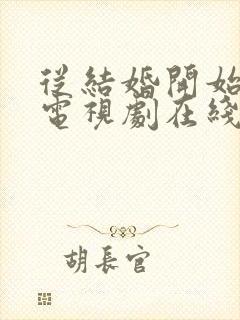 從結婚開始
電視劇在綫
胡長官